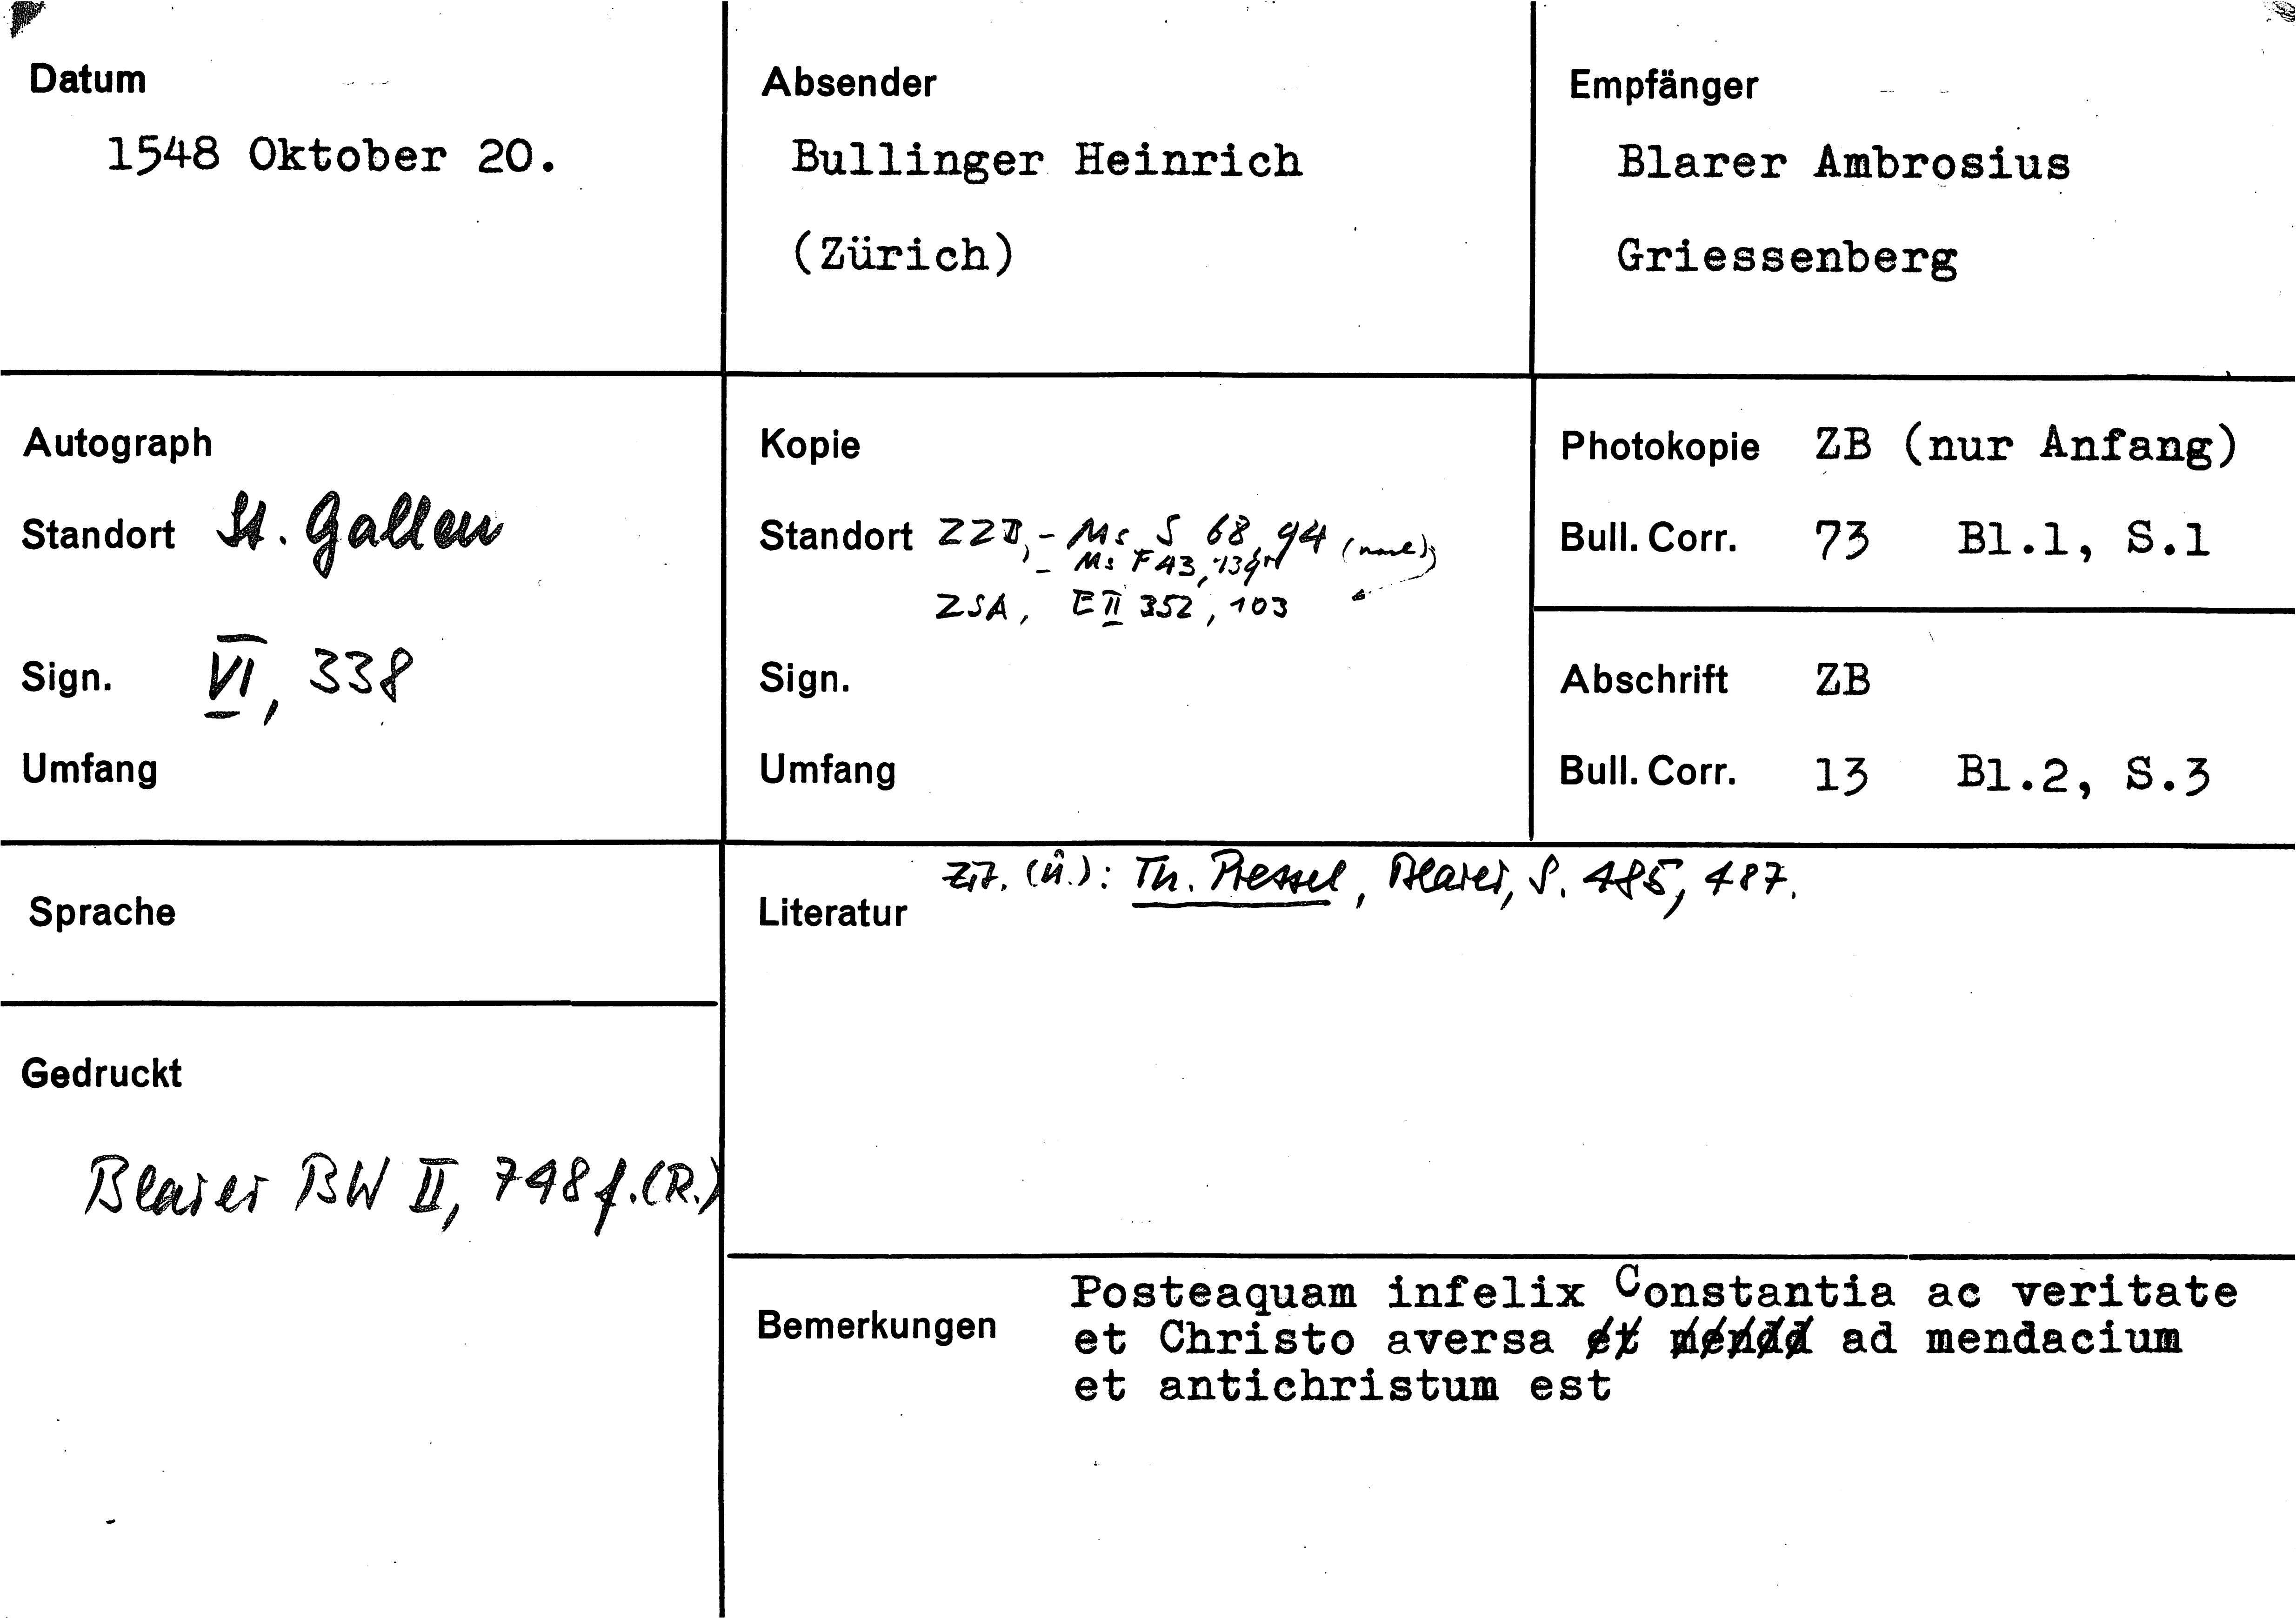 Datum
1548 Oktober 20.
Absender
Bullinger Heinrich
(Zürich)
Empfänger
Blarer Ambrosius
Griessenberg
Autograph
Standort St. Gallen
Sign. VI, 338
Umfang
Kopie
Standort ZZB, - Ms S 68, 94
- Ms F 43,
ZSA, E II 352, 103
Sign.
Umfang
Photokopie ZB (nur Anfang)
Bull. Corr. 73 Bl.1, S.1
Abschrift ZB
Bull. Corr. 13 Bl.2, S.3
Sprache
Gedruckt
Blarer BW II, 748 f. (R.)
Zit. (ü.): Th. Pressel, Blarer, S. 485, 487.
Literatur
Bemerkungen
Posteaquam infelix Constantia ac veritate
et Christo aversa et ad mendacium
et antichristum est